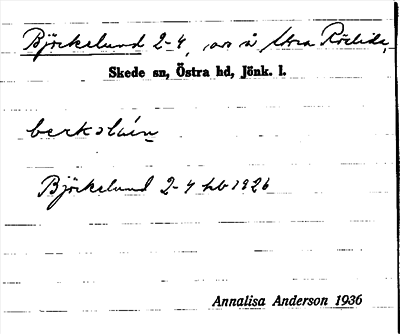 Björkelund 2-4, avs å Norra Rödja,
Skede sn, Östra hd, Jönk. l.
Björkelund 2-4 hb 1926
Annalisa Anderson 1936